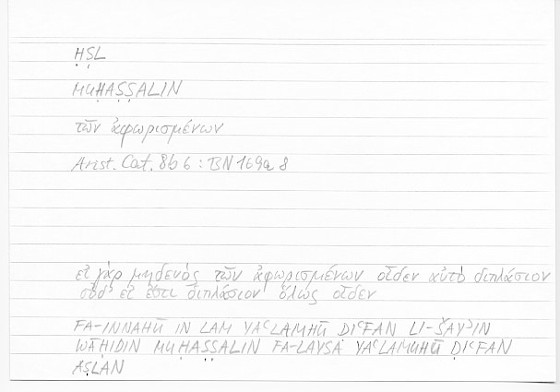 ḤṢL
MUḤAṢṢALIN
τῶν ἀφωρισμένων
Arist. Cat. 8b6 : BN 169a8
εἰ γὰρ μηδενὸς τῶν ἀφωρισμένων οἶδεν αὐτὸ διπλάσιον
οὐδ' εἰ ἔστι διπλάσιον ὅλως οἶδεν
FA-INNAHŪ IN LAM YAʿLAMHŪ ḌIʿFAN LI-ŠAYʾIN
WĀḤIDIN MUḤAṢṢALIN FA-LAYSA YAʿLAMUHŪ ḌIʿFAN
AṢLAN